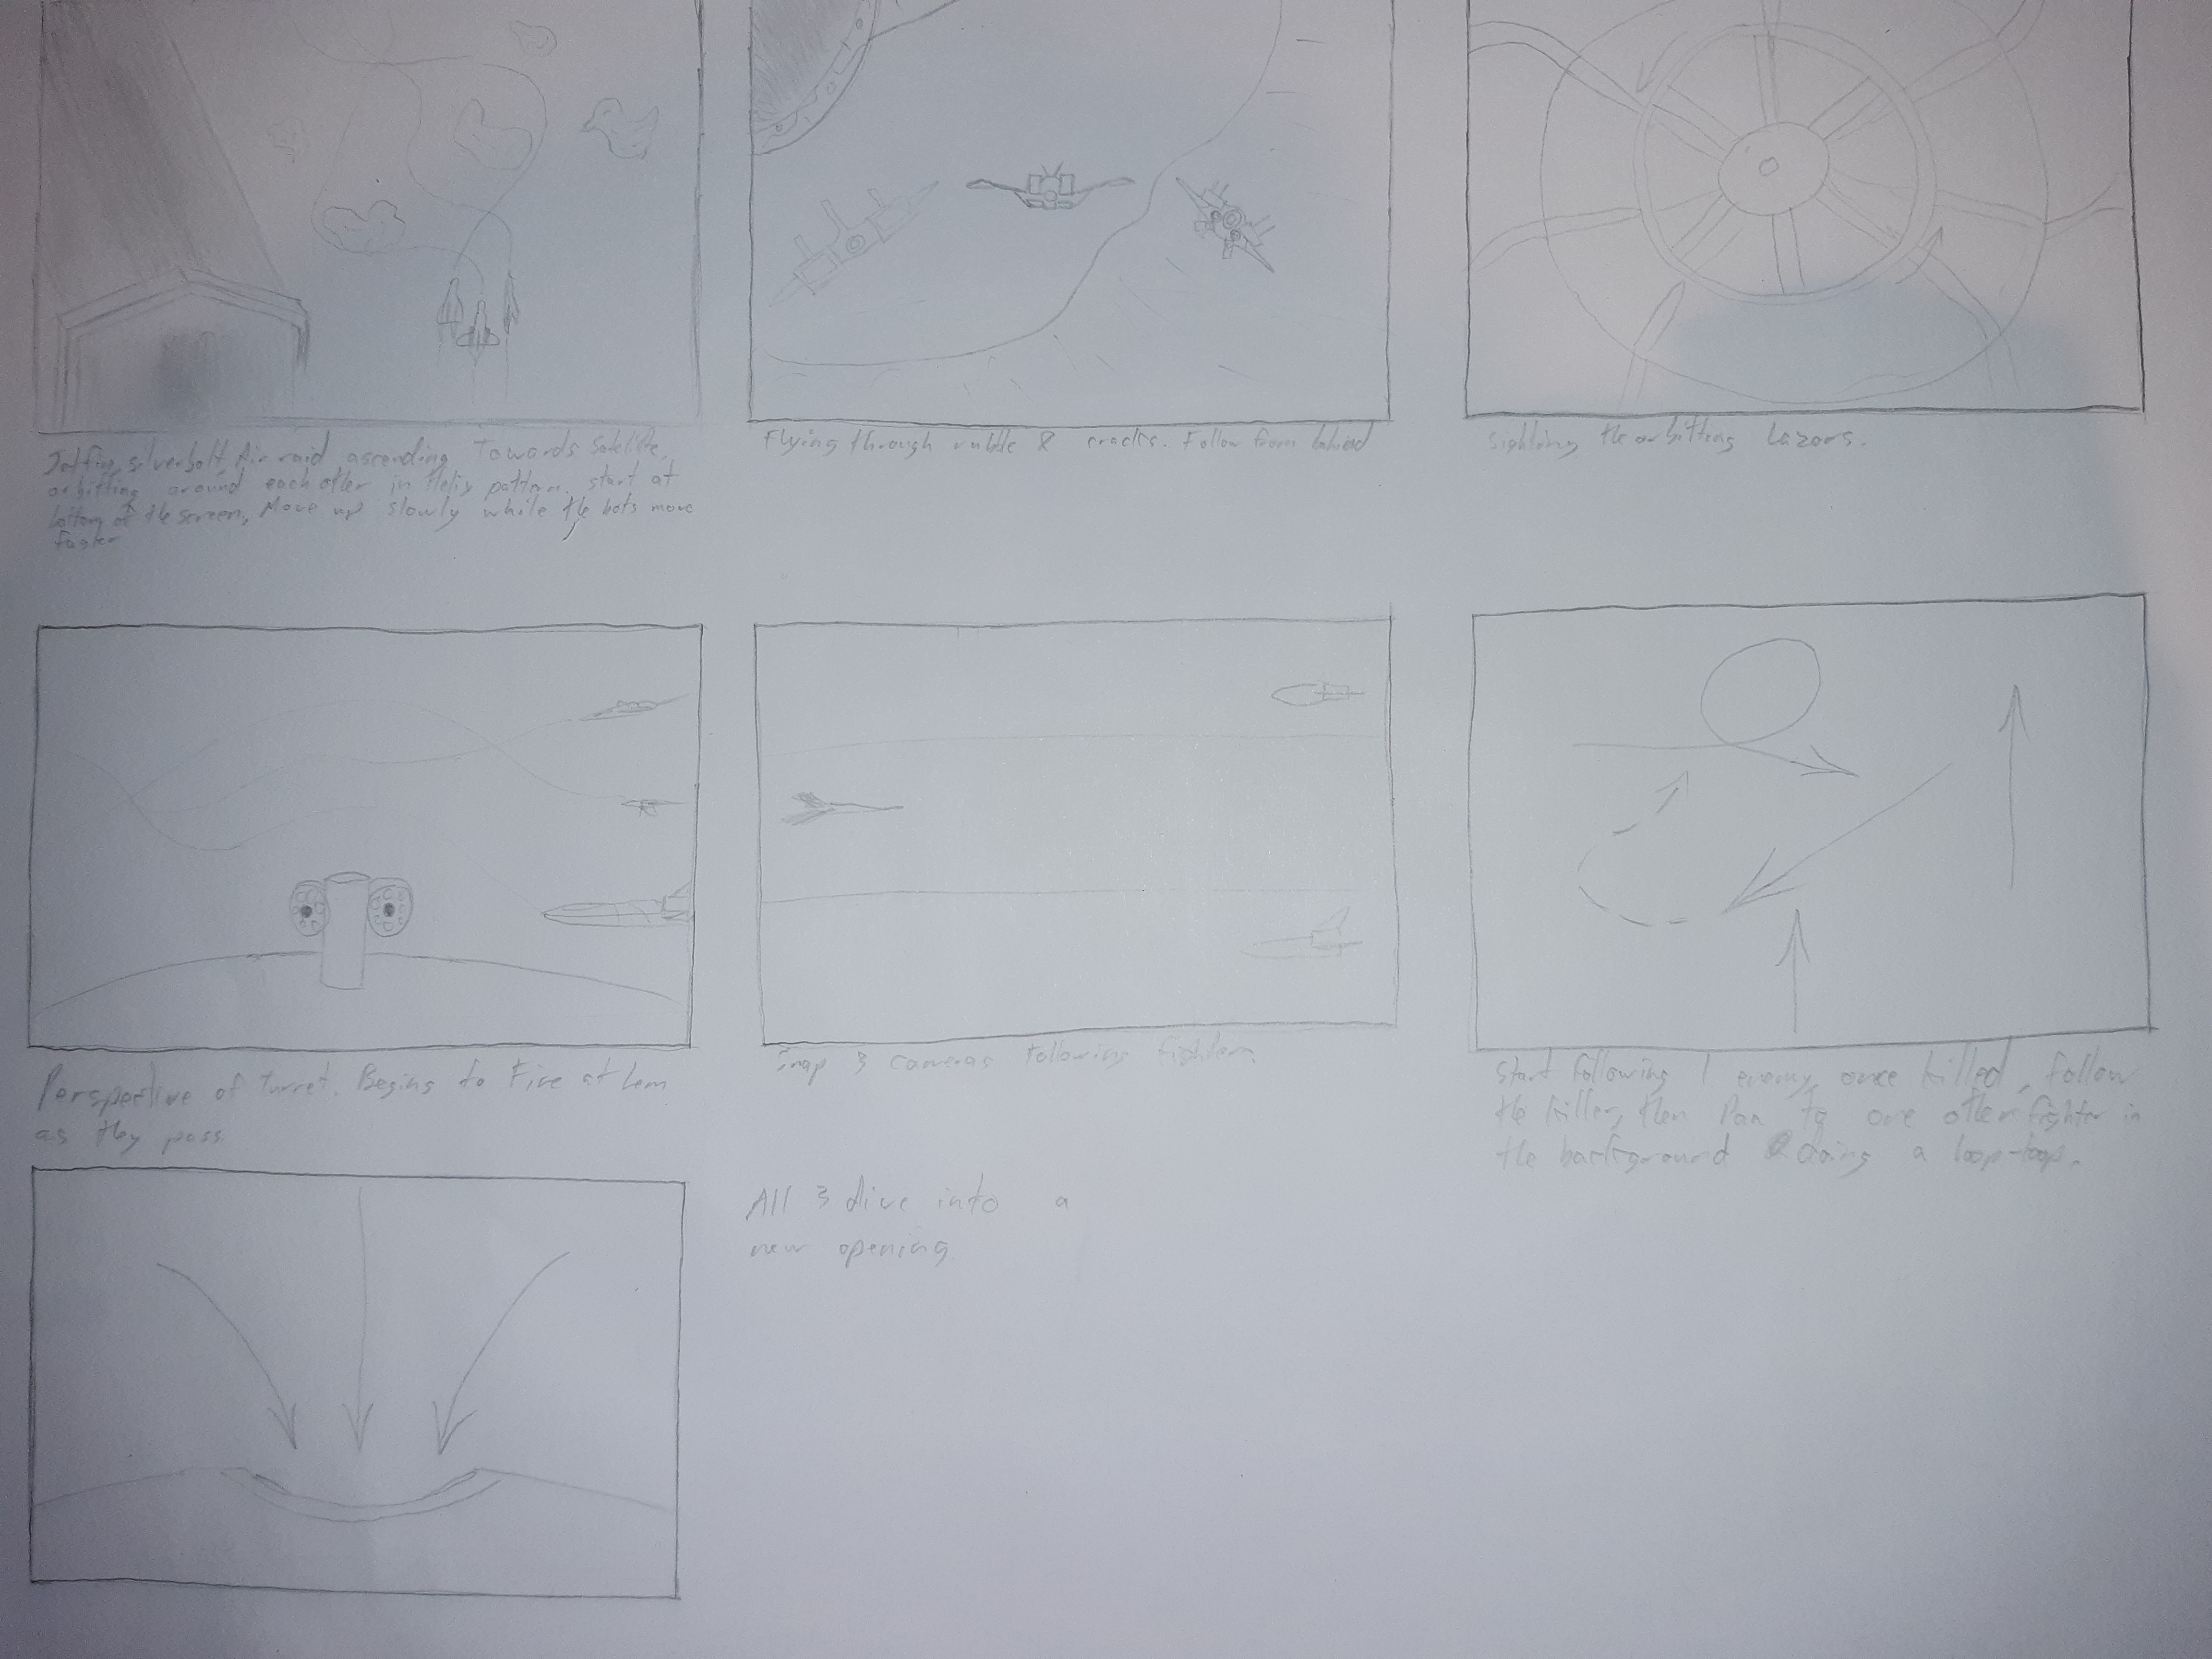 Jetfire, silverbolt, Air raid ascending Towards Satellite,
orbitting around each other in Helix pattern. start at
bottom of the screen, Move up slowly while the bots move
faster
Flying through rubble & cracks. Follow from behind
Sighting the orbitting Lazors.
Perspective of turret. Begins to Fire at them
as they pass.
Snap 3 cameras following fighters.
Start following 1 enemy, once killed, follow
the killer, then Pan to one other fighter in
the background doing a loop-loop.
All 3 dive into a
new opening